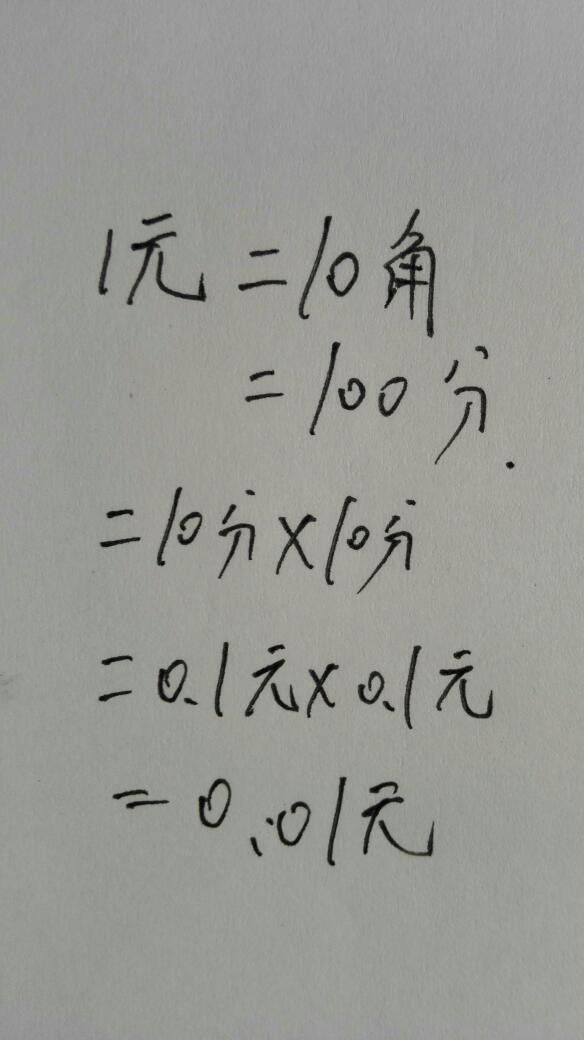 1元=10角
=100分.
=10分×10分
=0.1元×0.1元
=0.01元